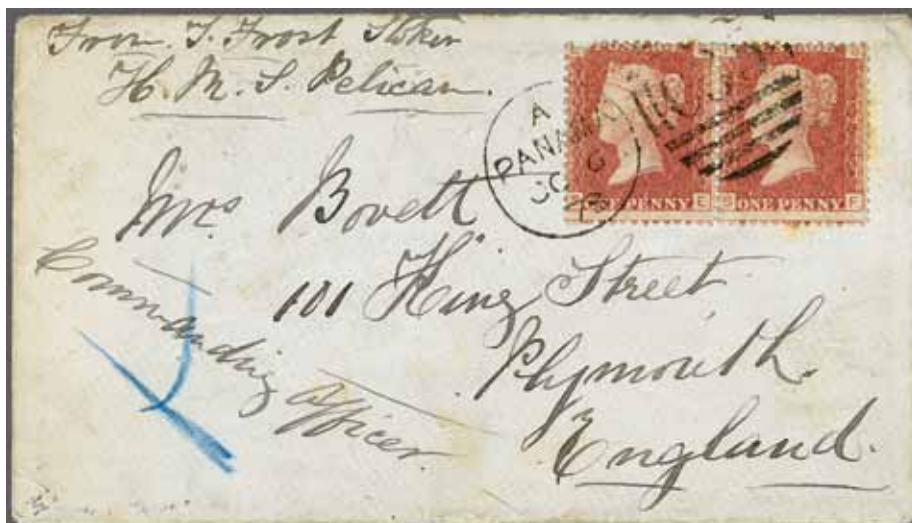 From. T. Frost Stoker
H. M. S. Pelican.
A
PANAMA
ONE PENNY
ONE PENNY
Mrs Bovett
101 King Street
Plymouth.
England.
Commanding Officer.